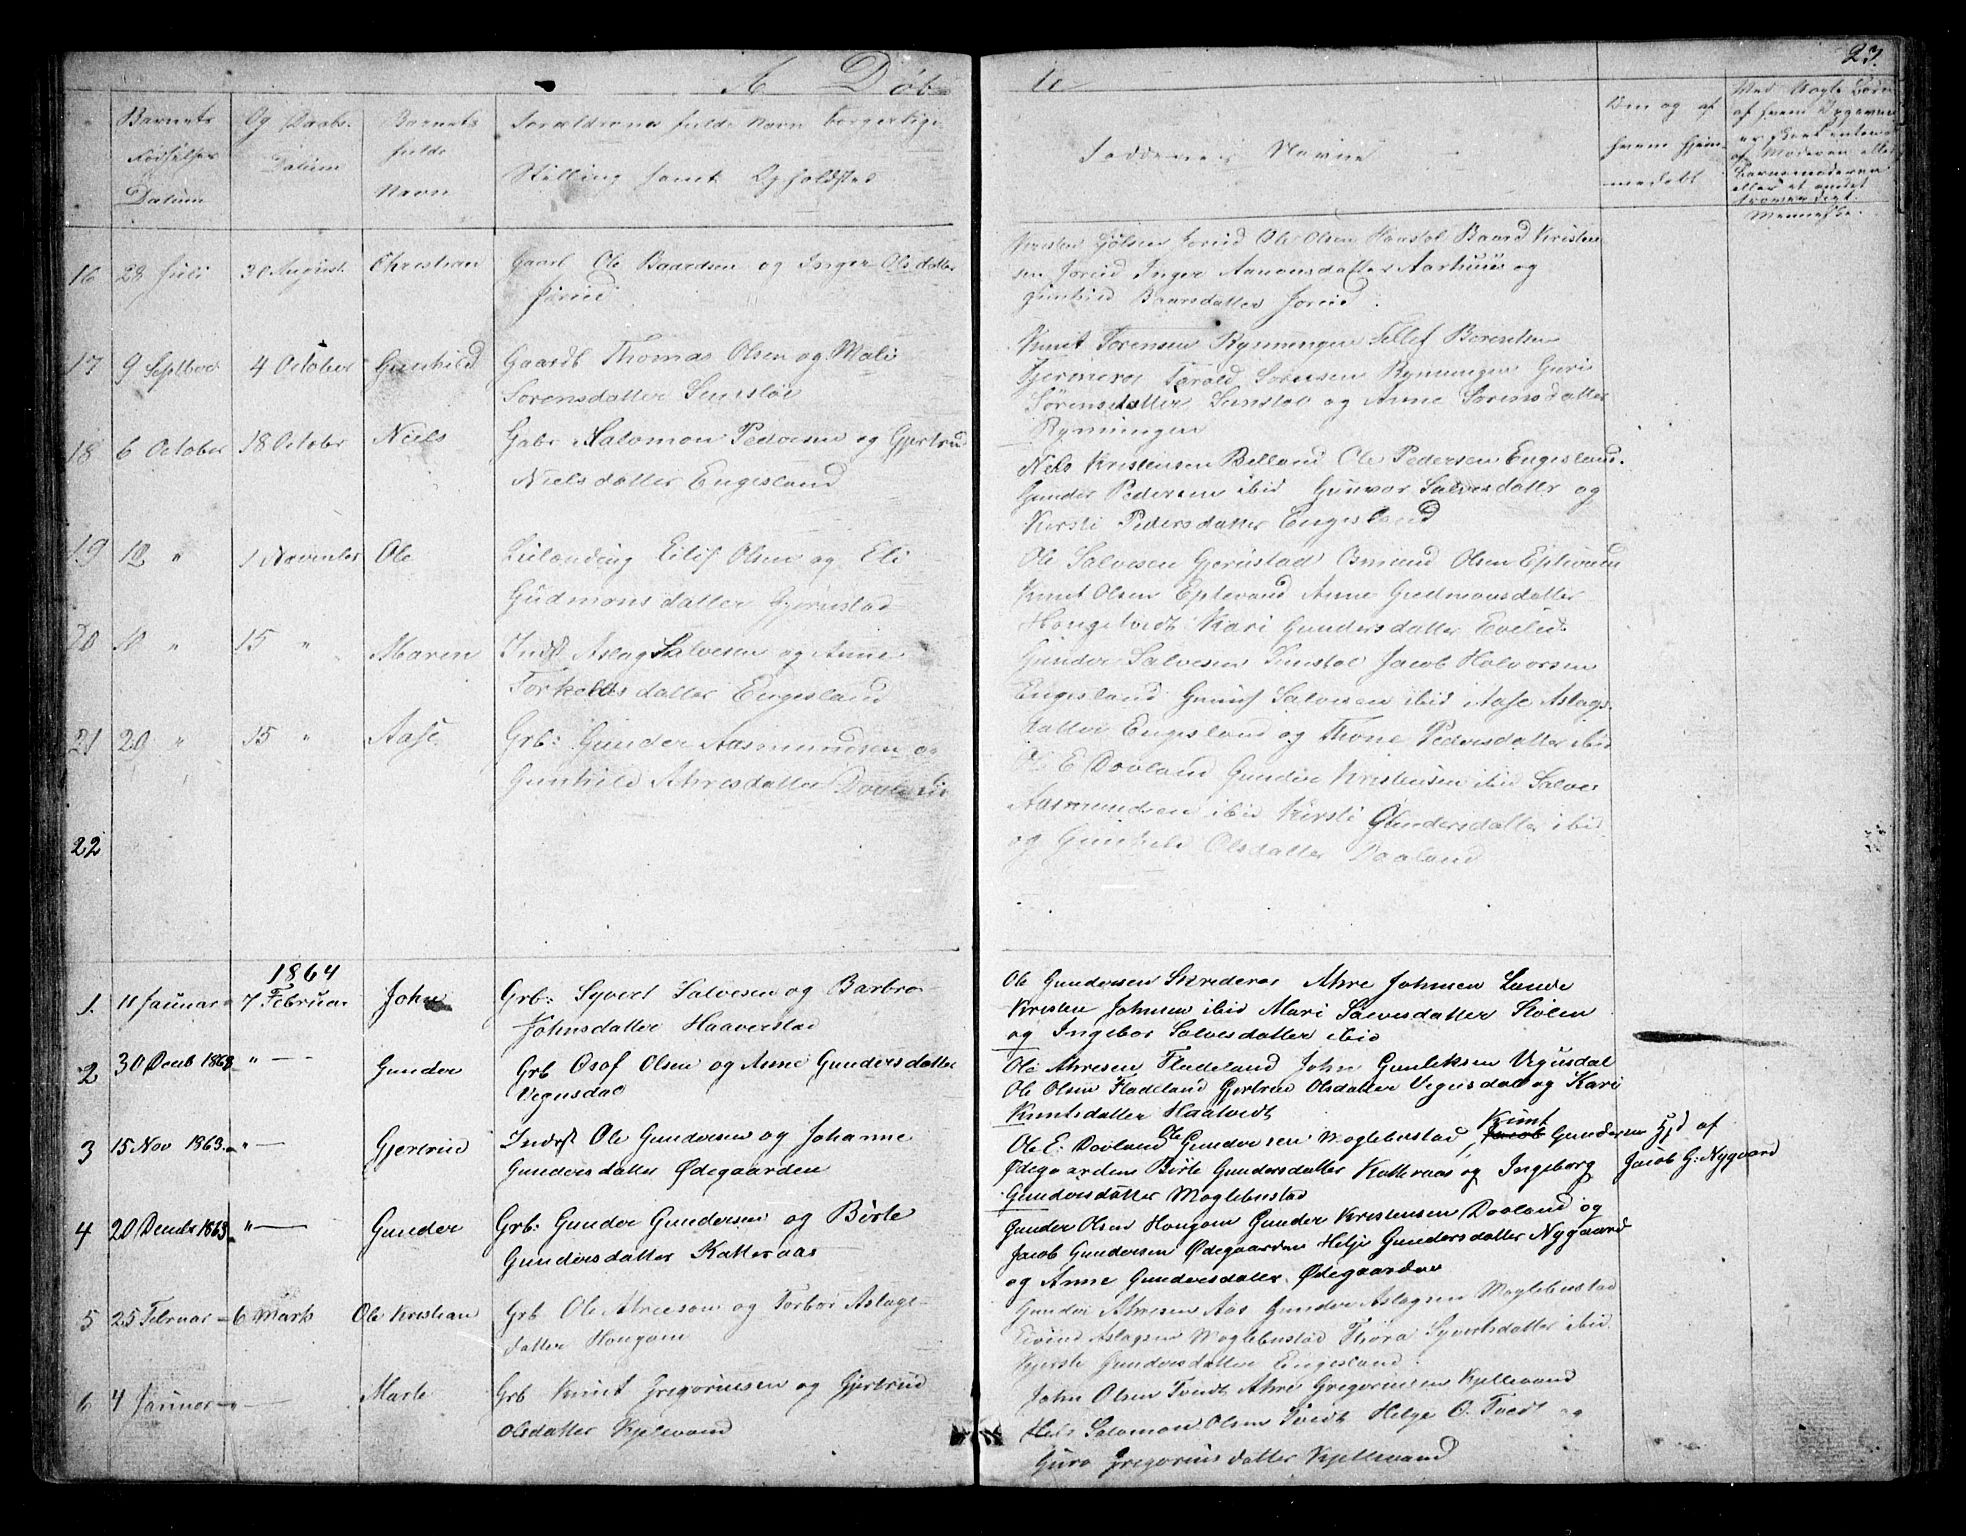 23.
A. Døb te
Barnets Fødselses Datum
Og Daabs Datum
Barnets fulde Navn
Forældrenes fulde Navn borgerlige
Stilling samt Opholdsted
Faddernes Navne
Om og af
hvem hjem-
medøbt
16 28 Juli 30 August Christian Gaarb Ole Baardsen og Inger Olsdatter
Joreid
Kristen Joreid Ole Olsen Baard Kristen
sen Joreid Inger Aanonsdatter Aarhuus og
Gunhild Baarsdatter Joreid.
17 9 Septbr 4 October Gunhild Gaardb Thomas Olsen og Mali
Sørensdatter
Knut Sørensen Rymningen Tellef
Tarald Sørensen Rymningen Guri
Sørensdatter og Anne Sørensdatter
Rymningen
18 6 October 18 October Niels Gabr Salomon Pedersen og Gjertrud
Nielsdatter Engesland
Nels Kristensen Belland Ole Pedersen Engesland.
Gunder Pedersen ibid Gunvor Salvesdattr og
Kersti Pedersdatter Engesland
19 12 " 1 November Ole Eilef Olsen og Eli
Gudmonsdatter Gjerustad
Ole Salvesen Gjerustad Osmund Olsen Eptevand
Knut Olsen Eptevand Anne Gudmonsdatter
Hongetvedt Kari Gundersdatter
20 10 " 15 " Maren Indst Aslag Salvesen og Anne
Torkelsdatter Engesland
Gunder Salvesen Jacob Halvorsen
Engesland Salvesen ibid Aase Aslags-
datter Engesland og Thone Pedersdatter ibid
21 20 " 15 " Aase Grb: Gunder Aasmundsen og
Gunhild Ahresdatter Dovland
Ole E Dovland Gunder Kristensen ibid Salve
Aasmundsen ibid Kirsti Gundersdatter ibid
og Gunhild Olsdatter Dovland
22
1864
1. 11 Januar 7 Februar John Grb: Syvert Salvesen og Barbro
Johnsdatter Haaverstad
Ole Gundersen Skrederos Ahre Johnsen Lunde
Kristen Johnsen ibid Mari Salvesdatter Stölen
og Ingebor Salvesdatter ibid
2 30 Decb 1863 " — Gunder Grb Osof Olsen og Anne Gundersdatter
Vegusdal
Ole Ahresen Fladeland John Gunleksen Vegusdal
Ole Olsen Fladeland Gjertrud Olsdatter Vegusdal og Kari
Knutsdatter Haatvedt
3 15 Nov 1863 " — Gjertrud Indst Ole Gundersen og Johanne
Gundersdatter Ødegaarden
Ole E: Dovland Ole Gundersen Moglebustad, Jacob Knut Gundersen
Ødegaarden Birte Gundersdatter Katteraas og Ingeborg
Gundersdatter Moglebustad
Hjd af
Jacob G: Nygaard
4 20 Decbr 1863 " — Gunder Grb: Gunder Gundersen og Birte
Gundersdatter Katteraas
Gunder Olsen Hougom Gunder Kristensen Dovland og
Jacob Gundersen Ødegaarden Helje Gundersdatter Nygaard
og Anne Gundersdatter Ødegaarden
5 25 Februar 6 Marts Ole Kristian Grb Ole Ahresen og Torbor Aslags-
datter Hougom
Gunder Ahresen Aas Gunder Aslagsen Moglebustad
Eivind Aslagsen Moglebustad Thora Syvertsdatter ibid.
Kjersti Gundersdatter Engesland.
6 4 Januar — Marte Grb Knut Gregoriusen og Gjertrud
Olsdatter Kjetevand
John Olsen Tvedt Ahre Gregoriusen Kjettevand
Salomon Olsen Tvedt Helge O. Tvedt og
Guro Gregoriusdatter Kjettevand